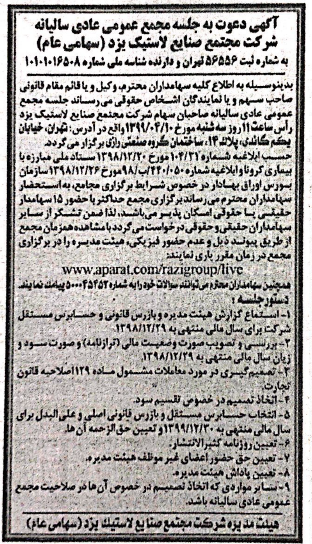 آگهی دعوت به جلسه مجمع عمومی عادی سالیانه
شرکت مجتمع صنایع لاستیک یزد (سهامی عام)
به شماره ثبت ۵۶۵۵۶ تهران و دارنده شناسه ملی شماره ۱۰۱۰۱۰۱۶۵۰۸
بدینوسیله به اطلاع کلیه سهامداران محترم، وکیل و یا قائم مقام قانونی
صاحب سهم و یا نمایندگان اشخاص حقوقی می‌رساند جلسه مجمع
عمومی عادی سالیانه صاحبان سهام شرکت مجتمع صنایع لاستیک یزد
رأس ساعت ۱۱ روز سه شنبه مورخ ۱۳۹۹/۰۴/۱۰ واقع در آدرس: تهران، خیابان
یکم گاندی، پلاک ۱۴، ساختمان گروه صنعتی رازی برگزار می‌گردد.
حسب ابلاغیه شماره ۱۰۴/۲۱ مورخ ۱۳۹۸/۱۲/۲۰ ستاد ملی مبارزه با
بیماری کرونا و ابلاغیه شماره ۴۴۰/۰۵۰/ب/۹۸ مورخ ۱۳۹۸/۱۲/۲۶ سازمان
بورس اوراق بهادار در خصوص شرایط برگزاری مجامع، به استحضار
سهامداران محترم می‌رساند برگزاری مجمع حداکثر با حضور ۱۵ سهامدار
حقیقی یا حقوقی امکان پذیر می‌باشد. لذا ضمن تشکر از سایر
سهامداران حقیقی و حقوقی درخواست می‌گردد با مشاهده همزمان مجمع
از طریق پیوند ذیل و عدم حضور فیزیکی، هیئت مدیره را در برگزاری
مجمع در زمان مقرر یاری نمایند:
www.aparat.com/razigroup/live
همچنین سهامداران محترم می‌توانند سوالات خود را به شماره ۵۰۰۰۴۵۴۵۲ پیامک نمایند.
دستور جلسه:
۱- استماع گزارش هیئت مدیره و بازرس قانونی و حسابرس مستقل
شرکت برای سال مالی منتهی به ۱۳۹۸/۱۲/۲۹
۲- بررسی و تصویب صورت وضعیت مالی (ترازنامه) و صورت سود و
زیان سال مالی منتهی به ۱۳۹۸/۱۲/۲۹.
۳- تصمیم‌گیری در مورد معاملات مشمول ماده ۱۲۹ اصلاحیه قانون
تجارت
۴- اتخاذ تصمیم در خصوص تقسیم سود.
۵- انتخاب حسابرس مستقل و بازرس قانونی اصلی و علی البدل برای
سال مالی منتهی به ۱۳۹۹/۱۲/۳۰ و تعیین حق الزحمه آن ها.
۶- تعیین روزنامه کثیرالانتشار.
۷- تعیین حق حضور اعضای غیر موظف هیئت مدیره.
۸- تعیین پاداش هیئت مدیره.
۹- سایر مواردی که اتخاذ تصمیم در خصوص آن ها در صلاحیت مجمع
عمومی عادی سالیانه باشد.
هیئت مدیره شرکت مجتمع صنایع لاستیک یزد (سهامی عام)